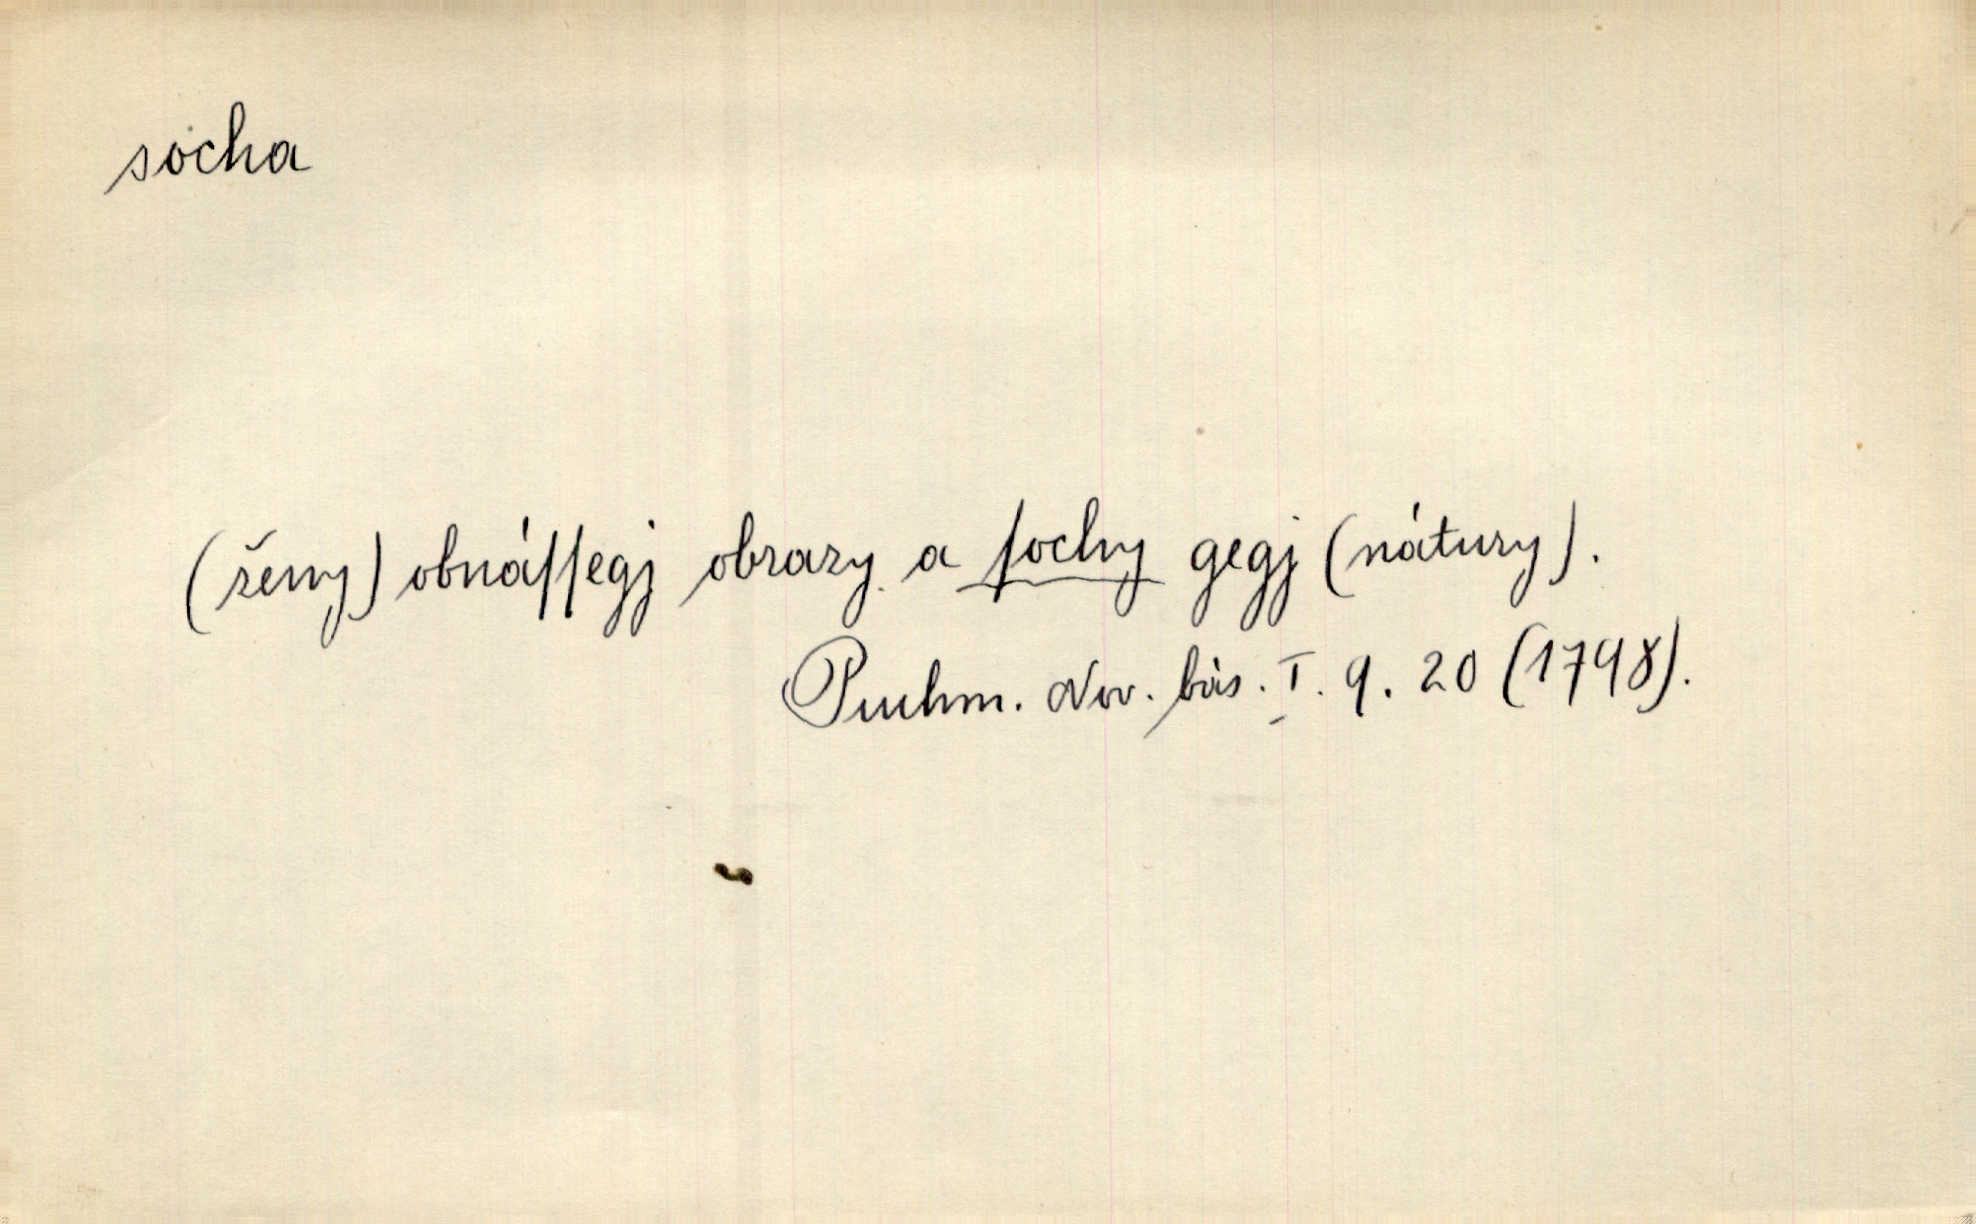 socha
(ženy) obnáſſegj obrazy a ſochy gegj (nátury).
Puchm. Nov. bás. I. 9. 20 (1798).